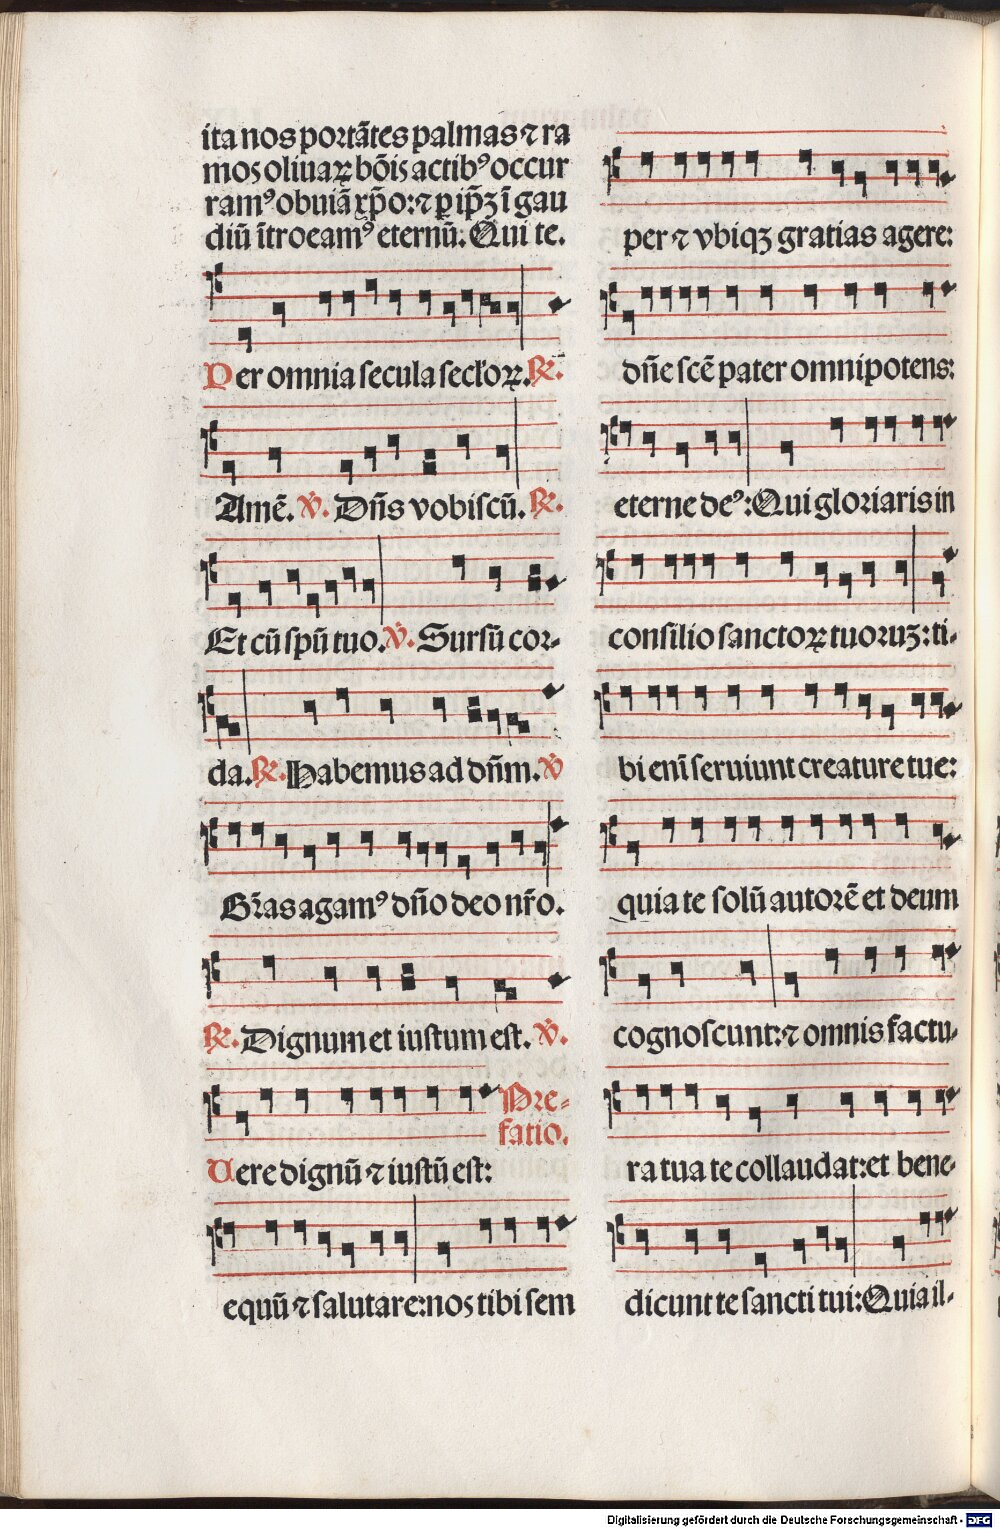 ita nos portãtes palmas ⁊ ra
mos oliuaꝝ bõis actibꝰ occur
ramꝰ obuiã xp̃o: ⁊ ꝑ ip̃ꝫ ĩ gau
diũ ĩtroeamꝰ eternũ. Qui te.
Per omnia secula secl'oꝝ. ℟.
Amẽ. ℣. Dñs vobiscũ. ℟.
Et cũ spũ tuo. ℣. Sursũ cor-
da. ℟. Habemus ad dñm. ℣
Gr̃as agamꝰ dño deo nr̃o.
℟. Dignum et iustum est. ℣.
Pre-
fatio.
Uere dignũ ⁊ iustũ est:
equũ ⁊ salutare: nos tibi sem
per ⁊ vbiqꝫ gratias agere:
dñe scẽ pater omnipotens:
eterne deꝰ: Qui gloriaris in
consilio sanctoꝝ tuoruꝫ: ti-
bi enĩ seruiunt creature tue:
quia te solũ autorẽ et deum
cognoscunt: ⁊ omnis factu-
ra tua te collaudat: et bene-
dicunt te sancti tui: Quia il-
Digitalisierung gefördert durch die Deutsche Forschungsgemeinschaft - DFG